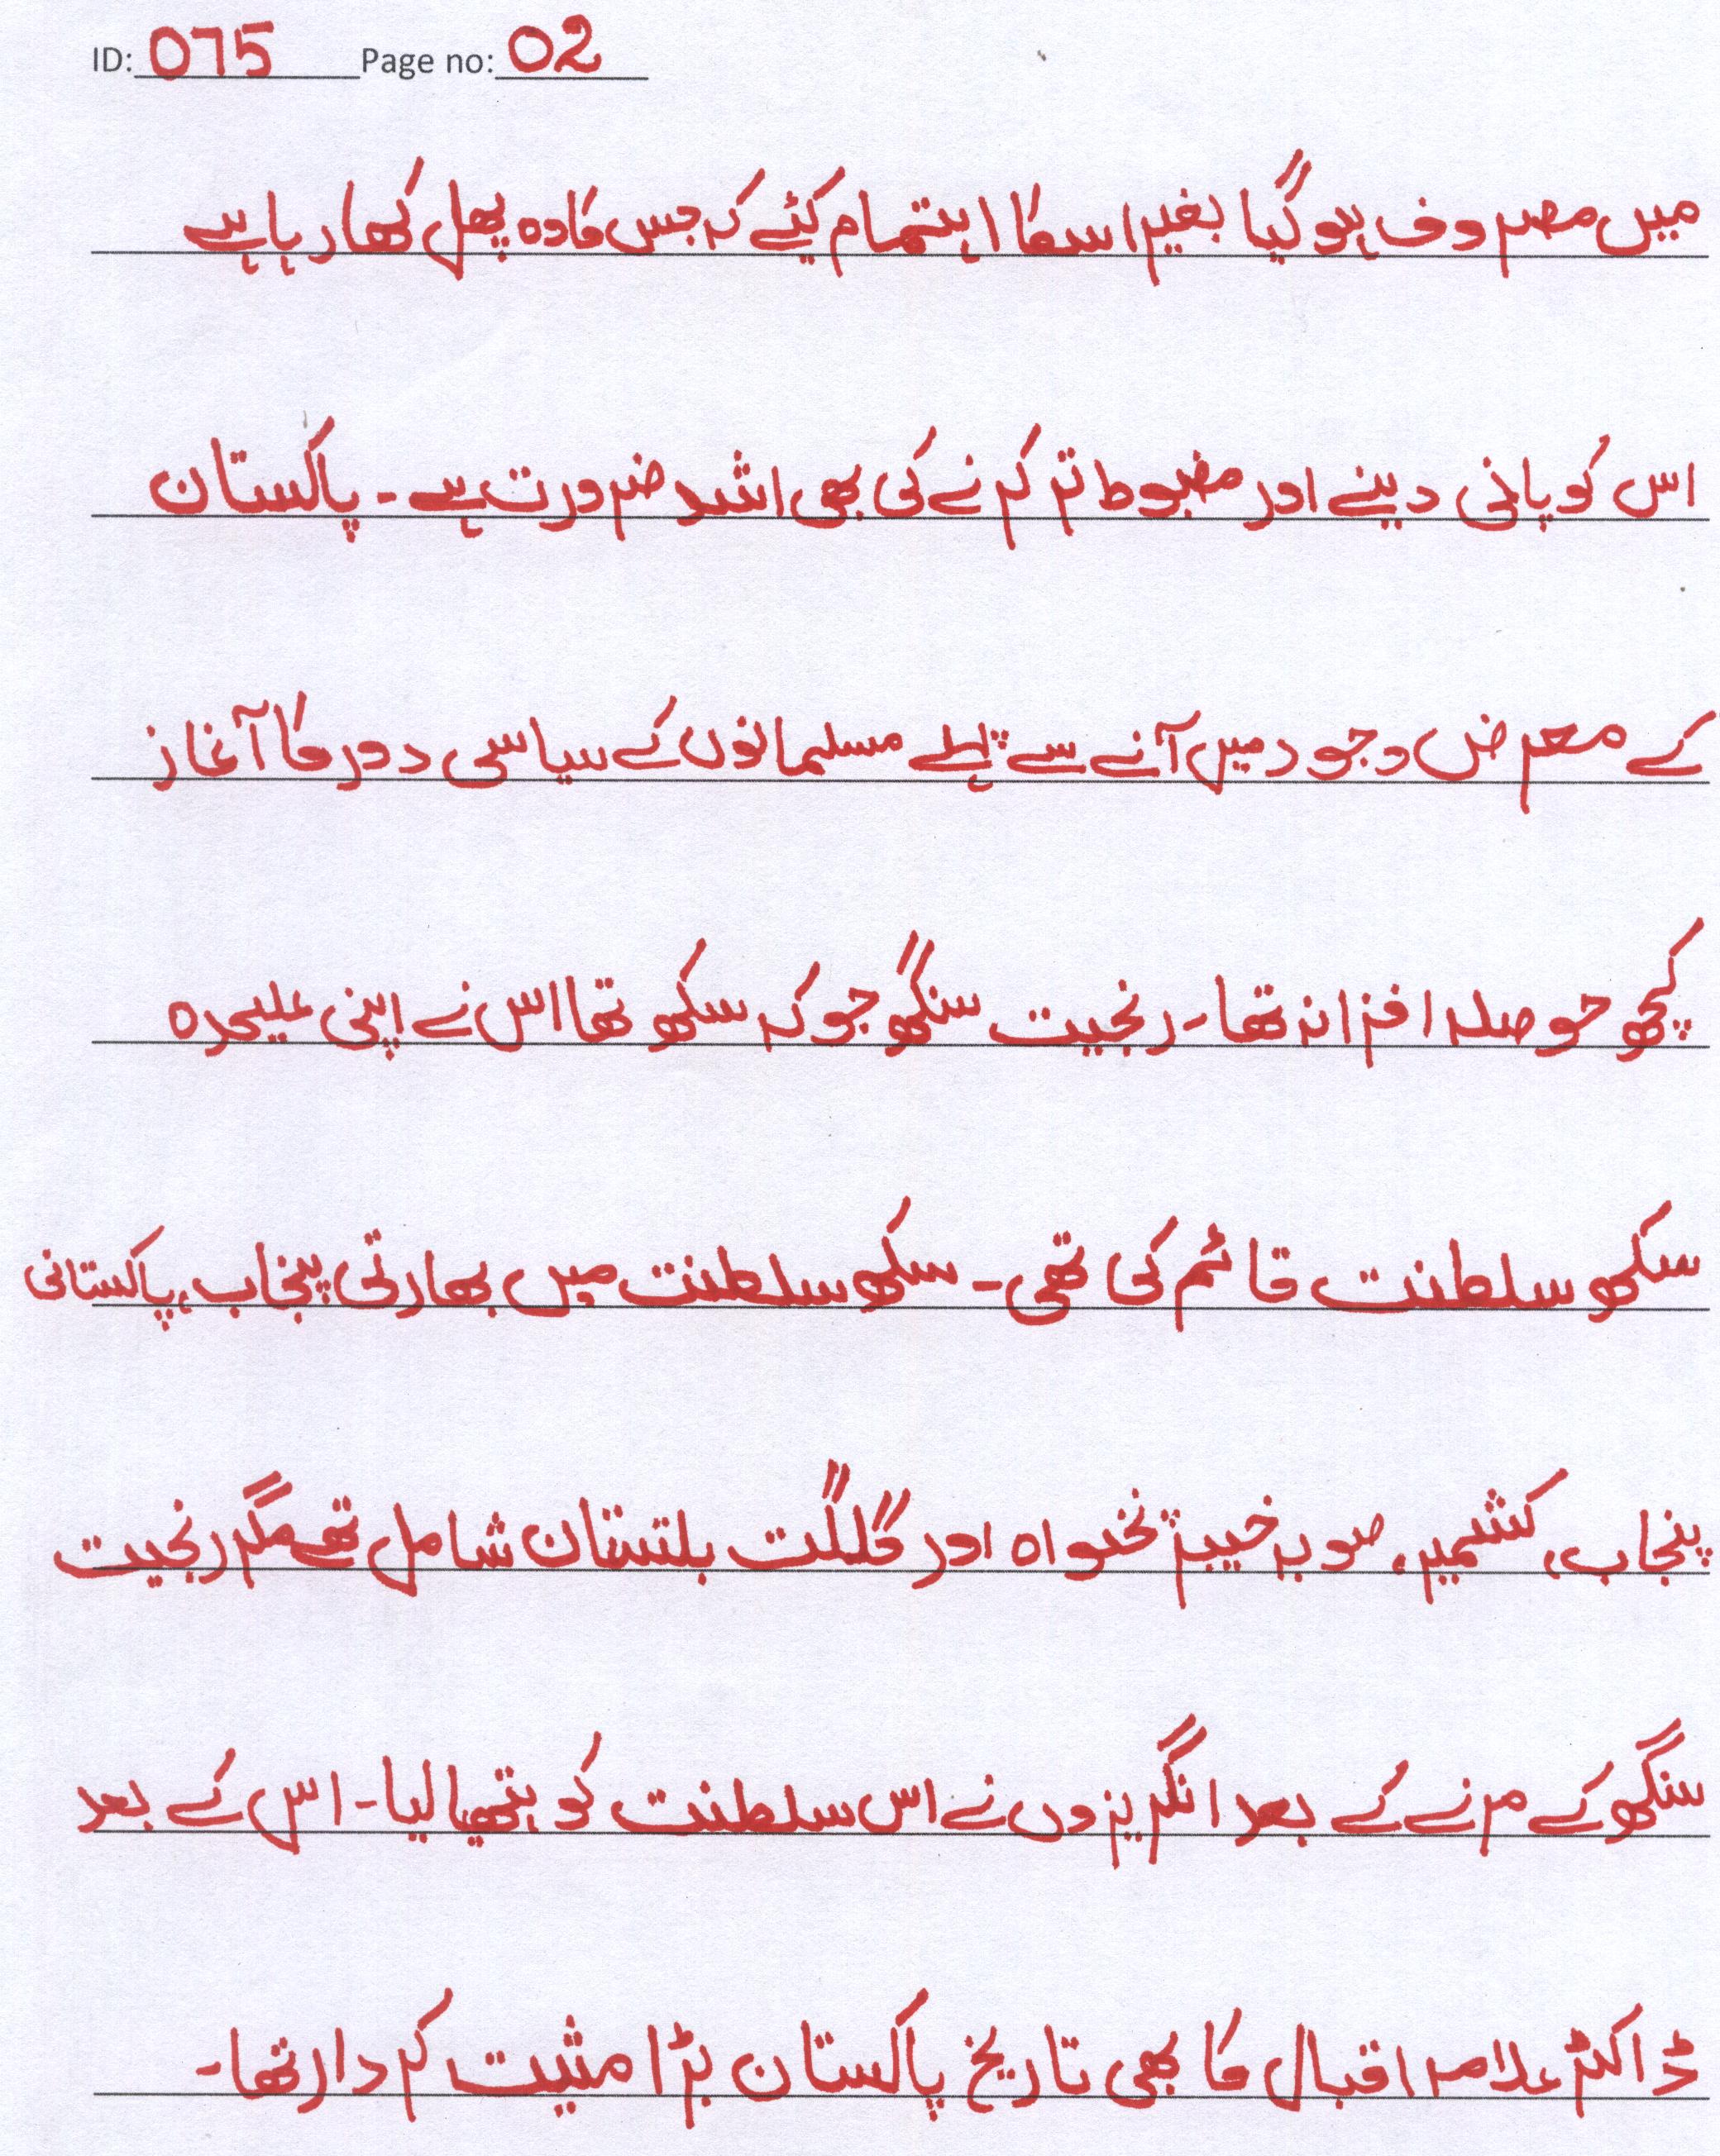 ID: 075 Page no: 02
میں مصروف ہو گیا بغیر اسکا اہتمام کیٔے کہ جس کا وہ پھل کھا رہا ہے
اس کو پانی دینے اور مضبوط تر کرنے کی بھی اشد ضرورت ہے۔ پاکستان
کے معرض وجود میں آنے سے پہلے مسلمانوں کے سیاسی دور کا آغاز
کچھ حوصلہ افزا نہ تھا۔ رنجیت سنگھ جو کہ سکھ تھا اس نے اپنی علیحدہ
سکھ سلطنت قائم کی تھی۔ سکھ سلطنت میں بھارتی پنجاب، پاکستانی
پنجاب، کشمیر، صوبہ خیبر پختواہ اور گلگت بلتستان شامل تھے مگر رنجیت
سنگھ کے مرنے کے بعد انگریزوں نے اس سلطنت کو ہتھیا لیا۔ اس کے بعد
ڈاکٹر علامہ اقبال کا بھی تاریخ پاکستان بڑا مثبت کردار تھا۔